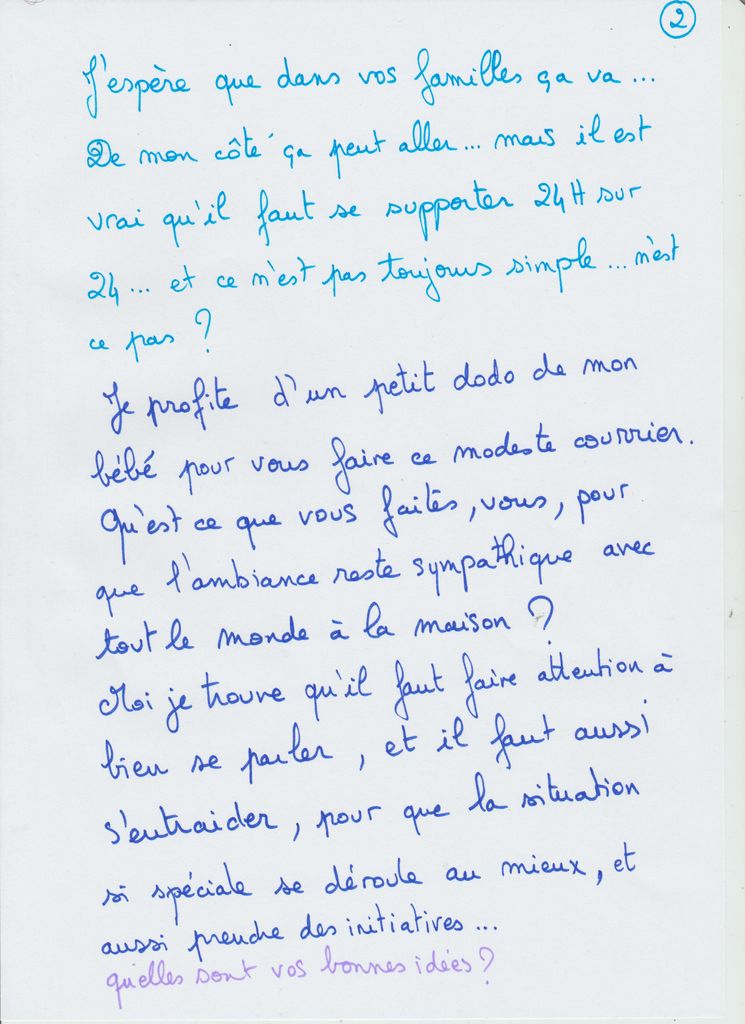 2
J'espère que dans vos familles ça va...
De mon côté ça peut aller... mais il est
vrai qu'il faut se supporter 24H sur
24... et ce n'est pas toujours simple... n'est
ce pas ?
Je profite d'un petit dodo de mon
bébé pour vous faire ce modeste courrier.
Qu'est ce que vous faites, vous, pour
que l'ambiance reste sympathique avec
tout le monde à la maison ?
Moi je trouve qu'il faut faire attention à
bien se parler, et il faut aussi
s'entraider, pour que la situation
si spéciale se déroule au mieux, et
aussi prendre des initiatives...
quelles sont vos bonnes idées ?